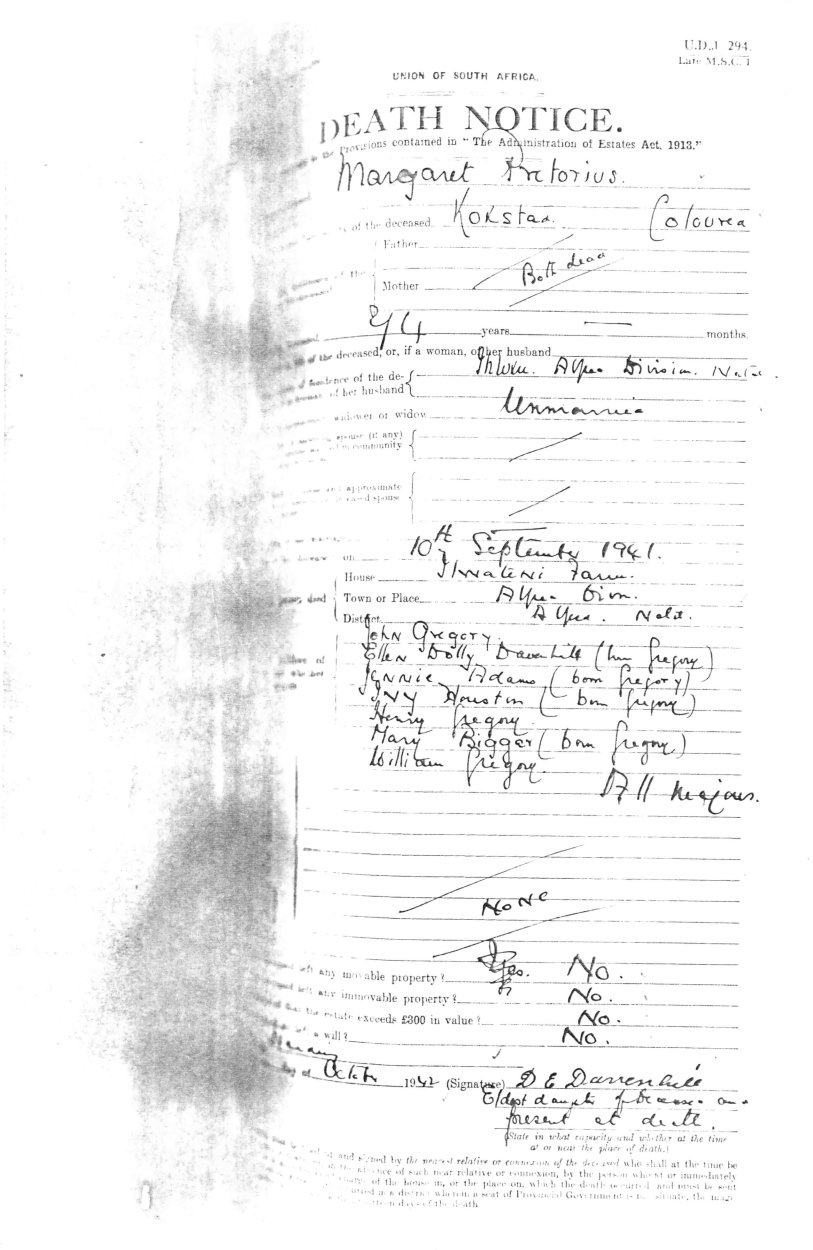 U.D.J 294.
Late M.S.C. 1
UNION OF SOUTH AFRICA.
DEATH NOTICE.
in the Provisions contained in " The Administration of Estates Act, 1913."
Margaret Pretorius.
of the deceased Kokstad. Coloured
Father
Both dead
of the
Mother
74 years — months.
of the deceased, or, if a woman, of her husband
residence of the de-
of her husband
Division. Natal
widower or widow Unmarried
spouse (if any)
in community
and approximate
deceased spouse
on 10th September 1941.
House Farm.
Town or Place
District Natal.
John Gregory.
Ellen Dolly Davenhill (born Gregory)
Jennie Adams (born Gregory)
Ivy Houston (born Gregory)
Henry Gregory
Mary Bigger (born Gregory)
William Gregory.
All Majors.
None
left any movable property? Yes. No.
left any immovable property? No.
that the estate exceeds £300 in value? No.
a will? No.
day of October 1942 (Signature) D E Davenhill
Eldest daughter of deceased and
present at death.
(State in what capacity and whether at the time
at or near the place of death.)
and signed by the nearest relative or connexion of the deceased who shall at the time be
the absence of such near relative or connexion, by the person who at or immediately
of the house in, or the place on, which the death occurred and must be sent
in a district wherein a seat of Provincial Government is situate, the
days of the death